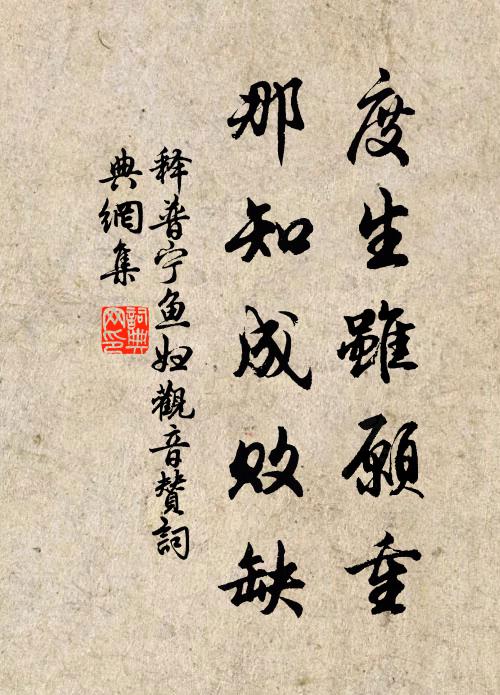 度生雖願重
那知成败缺
释普宁鱼妇觀音赞詞
典網集
詞典
网印